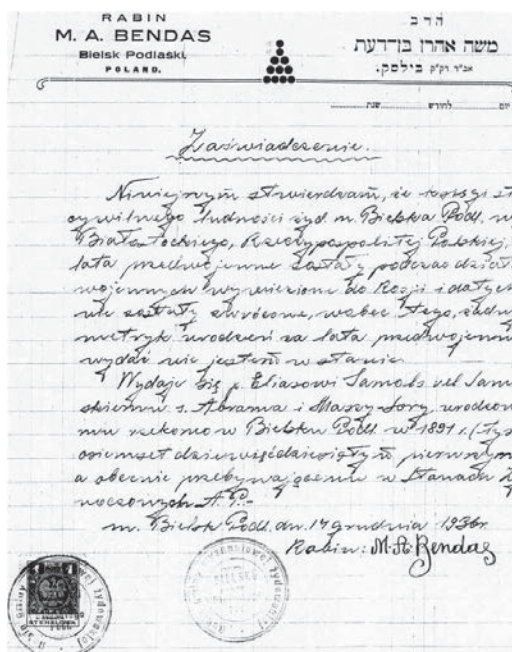 RABIN
M. A. BENDAS
Bielsk Podlaski,
POLAND.
הרב
משה אהרן בן־דעת
אב״ד דק״ק בילסק.
יום לחודש שנת
Zaświadczenie.
Niniejszym stwierdzam, że księgi st
cywilnego ludności żyd. m. Bielska Podl. w
Białostockiego, Rzeczypospolitej Polskiej,
lata przedwojenne zostały podczas dział
wojennych wywiezione do Rosji i dotych
nie zostały zwrócone, wobec tego, żadn
metryk urodzeń za lata przedwojenn
wydać nie jestem w stanie.
Wydaje się p. Eliasowi Samols vel Sam
skiemu s. Abrama i Maszy-Sory, urodzon
mu rzekomo w Bielsku Podl. w 1891 r. (tys
osiemset dziewięćdziesiątym pierwszym
a obecnie przebywającemu w Stanach Z
noczonych A. P.-
m. Bielsk Podl. dn. 14 grudnia 1936r.
Rabin: M. A. Bendas